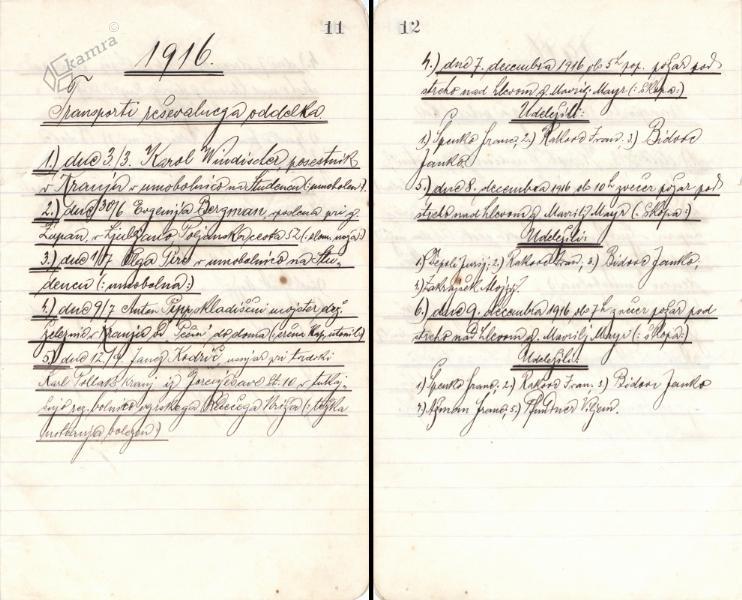 kamra
11
1916.
Transporti reševalnega oddelka
1.) dne 3/3. Karol Windischer posestnik
v Kranja v umobolnico na Studencu (: umobolen:)
2.) dne 30/6 Evgenija Bergman, poslena pri g.
Župan, v Ljubljano Poljanska cesta 52 (: zlom. noga:)
3.) dne 1/7 Olga Pirc v umobolnico na Stu-
dencu (: umobolna:)
4.) dne 9/7 Anton skladiščni mojster drž.
železnic v Kranja od do doma (:
5.) dne 12/9 Kodrič, usnjar pri tvrdki
Karl Pollak Kranj iz št. 10 v tukaj.
rez. bolnico Rdečega Križa (: težka
notranja bolezen:)
12
4.) dne 7. decembra 1916 ob 5h pop. požar pod
streho nad hlevom g. Mavrilij Mayr (: Škopa:)
Udeležili:
1) Špenko Franc, 2) Rakovd Ivan, 3) Bidovc
Janko.
5.) dne 8. decembra 1916 ob 10h zvečer požar pod
streho nad hlevom g. Mavrilij Mayr (: Škopa:)
Udeležili:
1) Jurij, 2) Rakovd Ivan, 3) Bidovc Janko,
4) Zakrajšek Alojzij
6.) dne 9. decembra 1916 ob 7h zvečer požar pod
streho nad hlevom g. Mavrilij Mayr (: Škopa:)
Udeležili:
1) Špenko Franc, 2) Rakovd Ivan, 3) Bidovc Janko
4) Ažman Franc, 5) Viljem.